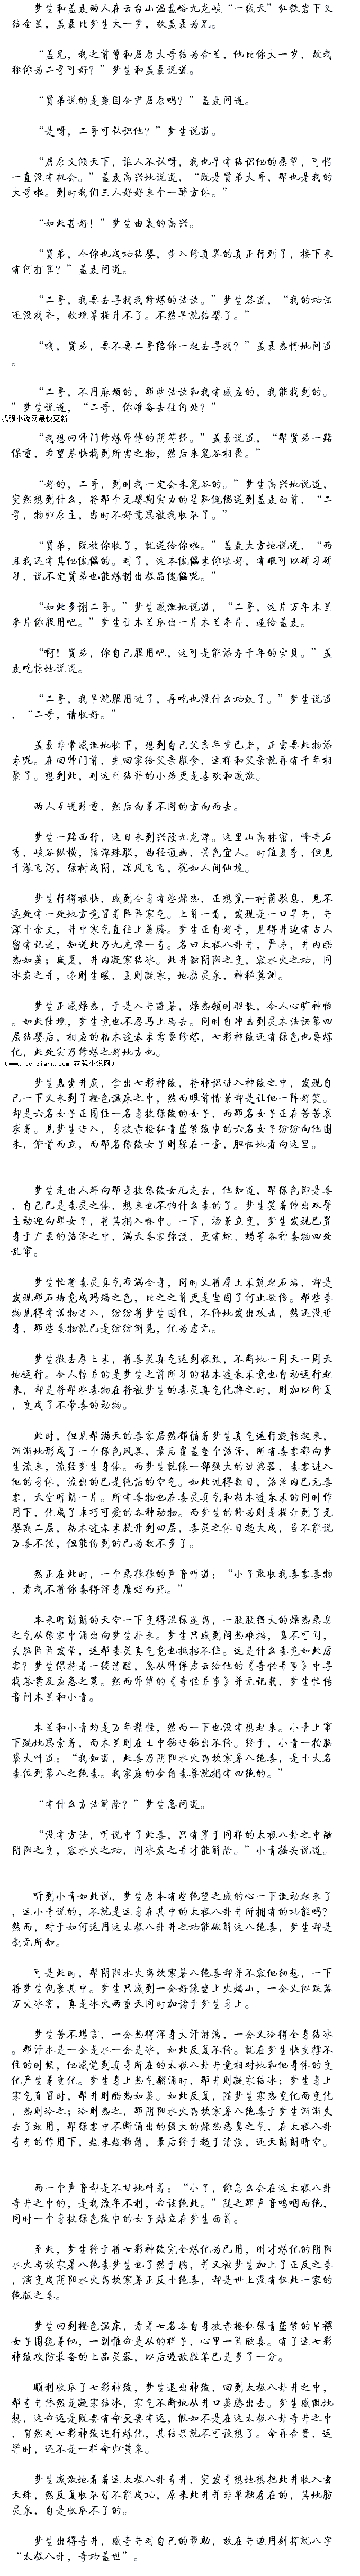 梦生和盖聂两人在云台山温盘峪九龙峡“一线天”红铁岩下义
结金兰，盖聂比梦生大一岁，故盖聂为兄。
“盖兄，我之前曾和屈原大哥结为金兰，他比你大一岁，故我
称你为二哥可好？”梦生和盖聂说道。
“贤弟说的是楚国令尹屈原吗？”盖聂问道。
“是呀，二哥可认识他？”梦生说道。
“屈原文倾天下，谁人不认呀，我也早有结识他的愿望，可惜
一直没有机会。”盖聂高兴地说道，“既是贤弟大哥，那也是我的
大哥啦。到时我们三人好好来个一醉方休。”
“如此甚好！”梦生由衷的高兴。
“贤弟，今你也成功结婴，步入修真界的真正行列了，接下来
有何打算？”盖聂问道。
“二哥，我要去寻找我修炼的法诀。”梦生答道，“我的功法
还没找齐，故境界提升不了。不然早就结婴了。”
“哦，贤弟，要不要二哥陪你一起去寻找？”盖聂热情地问道
。
“二哥，不用麻烦的，那些法诀和我有感应的，我能找到的。
”梦生说道，“二哥，你准备去往何处？”
忒强小说网最快更新
“我想回师门修炼师傅的阴符经。”盖聂说道，“那贤弟一路
保重，希望尽快找到所需之物，然后来鬼谷相聚。”
“好的，二哥，到时我一定会来鬼谷的。”梦生高兴地说道，
突然想到什么，将那个元婴期实力的星陨傀儡送到盖聂面前，“二
哥，物归原主，当时不好意思被我收取了。”
“贤弟，既被你收了，就送给你啦。”盖聂大方地说道，“而
且我还有其他傀儡的。对了，这本傀儡术你收好，有暇可以研习研
习，说不定贤弟也能炼制出极品傀儡呢。”
“如此多谢二哥。”梦生感激地说道，“二哥，这片万年木兰
参片你服用吧。”梦生让木兰取出一片木兰参片，递给盖聂。
“啊！贤弟，你自己服用吧，这可是能添寿千年的宝贝。”盖
聂吃惊地说道。
“二哥，我早就服用过了，再吃也没什么功效了。”梦生说道
，“二哥，请收好。”
盖聂非常感激地收下，想到自己父亲年岁已老，正需要此物添
寿呢。在回师门前，先回家给父亲服食，这样和父亲就再有千年相
聚了。想到此，对这刚结拜的小弟更是喜欢和感激。
两人互道珍重，然后向着不同的方向而去。
梦生一路西行，这日来到兴隆九龙潭。这里山高林密，峰奇石
秀，峡谷纵横，溪潭珠联，曲径通幽，景色宜人。时值夏季，但见
千瀑飞泻，绿树成阴，凉风飞飞，犹如人间仙境。
梦生行得极快，感到全身有些燥热，正想觅一树荫歇息，见不
远处有一处地方竟冒着阵阵寒气。上前一看，发现是一口旱井，井
深十余丈，井中寒气直往上蒸腾。梦生正自好奇，见得井边有古人
留有记述，知道此乃九龙潭一奇。名曰太极八卦井，严冬，井内酷
热如蒸；盛夏，井内凝寒结冰。此井融阴阳之变，容水火之功，同
冰炭之井，冬则生暖，夏则凝寒，地肪灵泉，神秘莫测。
梦生正感燥热，于是入井避暑，燥热顿时驱散，令人心旷神怡
。如此佳境，梦生竟也不忍马上离去。同时自冲击到灵木法诀第四
层结婴后，相应的枯木逢春术需要修炼，七彩神绫还有绿色也要炼
化，此处实乃修炼之好地方也。
（www.teiqiang.com 忒强小说网）
梦生盘坐井底，拿出七彩神绫，将神识进入神绫之中，发现自
己一下又来到了橙色温床之中，然而眼前情景却是让他一阵好笑。
却是六名女子正围住一名身披绿绫的女子，而那名女子正在苦苦哀
求着。见梦生进入，身披赤橙红青蓝紫绫巾的六名女子纷纷向他围
来，俯首而立，而那名绿绫女子则躲在一旁，胆怯地看向这里。
梦生走出人群向那身披绿绫女儿走去，他知道，那绿色即是毒
，自己已是毒灵之体，想来也不怕什么毒的了。梦生笑着伸出双臂
主动迎向那女子，将其拥入怀中。一下，场景立变，梦生发现已置
身于广袤的沼泽之中，满天毒雾弥漫，更有蛇、蝎等各种毒物四处
乱窜。
梦生忙将毒灵真气布满全身，同时又将厚土术筑起石墙，却是
发现那石墙竟成玛瑙之色，比之之前更是坚固了何止数倍。那些毒
物见得有活物进入，纷纷将梦生围住，不停地发出攻击，然还没近
身，那些毒物就已是纷纷倒毙，化为虚无。
梦生撤去厚土术，将毒灵真气运到极致，不断地一周天一周天
地运行。令人惊奇的是梦生之前所习的枯木逢春术竟也自动运行起
来，却是将那些毒物在将被梦生的毒灵真气化掉之时，则加以修复
，变成了不带毒的动物。
此时，但见那满天的毒雾居然都循着梦生真气运行旋转起来，
渐渐地形成了一个绿色风暴，最后覆盖整个沼泽，所有毒雾都向梦
生流来，流经梦生身体。而梦生就像一部强大的过滤器，毒雾进入
他的身体，流出的已是纯洁的空气。如此过得数日，沼泽内已无毒
雾，天空晴朗一片。所有毒物也在毒灵真气和枯木逢春术的同时作
用下，化成了乖巧可爱的各种动物。而梦生的修为则是提升到了元
婴期二层，枯木逢春术提升到四层，毒灵之体日趋大成，虽不能说
万毒不侵，但能伤到他的已为数不多了。
然正在此时，一个恶狠狠的声音叫道：“小子敢收我毒雾毒物
，看我不将你毒得浑身糜烂而死。”
本来晴朗朗的天空一下变得混绿迷离，一股股强大的燥热恶臭
之气从绿雾中涌出向梦生扑来。梦生只感到闷热难挡，臭不可闻，
头脑阵阵发晕，运那毒灵真气竟也抵挡不住。这是什么毒竟如此厉
害？梦生保持着一缕清醒，急从师傅虚云给他的《奇怪异事》中寻
找答案及应急之策。然而师傅的《奇怪异事》并无记载，梦生忙传
音问木兰和小青。
木兰和小青均是万年精怪，然而一下也没有想起来。小青上窜
下跳地思索着，而木兰则在土中钻进钻出不停。终于，小青一拍脑
袋大叫道：“我知道，此毒乃阴阳水火离坎寒暑八绝毒，是十大名
毒位列第八之绝毒。我家庭的金角毒兽就拥有四绝的。”
“有什么方法解除？”梦生急问道。
“没有方法，听说中了此毒，只有置于同样的太极八卦之中融
阴阳之变，容水火之功，同冰炭之井才能解除。”小青摇头说道。
听到小青如此说，梦生原本有些绝望之感的心一下激动起来了
，这小青说的，不就是这身在其中的太极八卦井所拥有的功能吗？
然而，对于如何运用这太极八卦井之功能破解这八绝毒，梦生却是
毫无所知。
可是此时，那阴阳水火离坎寒暑八绝毒却并不容他细想，一下
将梦生包裹其中。梦生只感到一会好像坐上火焰山，一会又似跌落
万丈冰窖，真是冰火两重天同时加诸于梦生身上。
梦生苦不堪言，一会热得浑身大汗淋漓，一会又冷得全身结冰
。那汗水是一会是水一会是冰，如此反复不停。就在梦生快支撑不
住的时候，他感觉到真身所在的太极八卦井竟相对地和他身体的变
化产生着变化。梦生身上热气翻涌时，那井则凝寒结冰；梦生身上
寒气直冒时，那井则酷热如蒸。如此反复，随梦生寒热变化而变化
，热则冷之；冷则热之，那阴阳水火离坎寒暑八绝毒于梦生渐渐失
去了效用，那绿雾中不断涌出的强大的燥热恶臭之气，在太极八卦
奇井的作用下，越来越稀薄，最后终于趋于清淡，还天朗朗晴空。
而一个声音却是不甘地叫着：“小子，你怎么会在这太极八卦
奇井之中的，是我流年不利，命该绝此。”随之那声音呜咽而绝，
同时一个身披绿色绫巾的女子站立在梦生面前。
至此，梦生终于将七彩神绫完全炼化为已用，刚才炼化的阴阳
水火离坎寒暑八绝毒梦生也了然于胸，并又被梦生加上了正反之毒
，演变成阴阳水火离坎寒暑正反十绝毒，却是世上没有仅此一家的
绝版之毒。
梦生回到橙色温床，看着七名各自身披赤橙红绿青蓝紫的半裸
女子围绕着他，一副惟命是从的样子，心里一阵欣喜。有了这七彩
神绫攻防兼备的上品灵器，以后遇敌胜算已是多了一分。
顺利收取了七彩神绫，梦生退出神绫，回到太极八卦井之中，
那奇井依然是凝寒结冰，寒气不断地从井口蒸腾出去。梦生感慨地
想，这命运是既要有命更要有运，假如不是在这太极八卦奇井之中
，冒然对七彩神绫进行炼化，其结果就不可设想了。命再金贵，运
弊时，还不是一样命归黄泉。
梦生感激地看着这太极八卦奇井，突发奇想地想把此井收入玄
天珠，然反复收取皆不能成功，原来此井并非单独存在的，其地肪
灵泉，自是收取不了的。
梦生出得奇井，感奇井对自己的帮助，故在井边用剑挥就八字
“太极八卦，奇功盖世”。